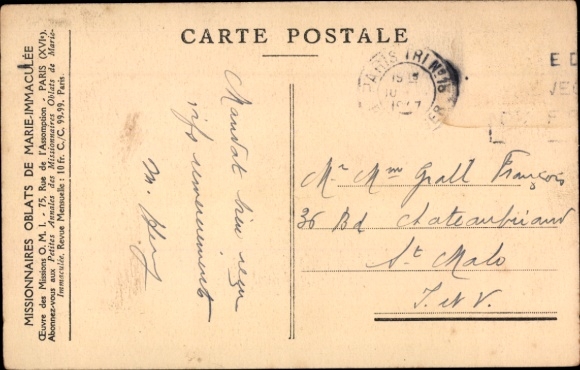 CARTE POSTALE
MISSIONNAIRES OBLATS DE MARIE-IMMACULÉE
Œuvre des Missions O. M. I. - 75, Rue de l'Assomption - PARIS (XVIe).
Abonnez-vous aux Petites Annales des Missionnaires Oblats de Marie-
Immaculée. Revue Mensuelle : 10 fr. C./C. 99-99. Paris.
Mandat bien reçu
remerciements
PARIS TRI No 18
15
10
1947
E D
Mr Mme Grall François
36 Bd Chateaubriand
St Malo
I. et V.